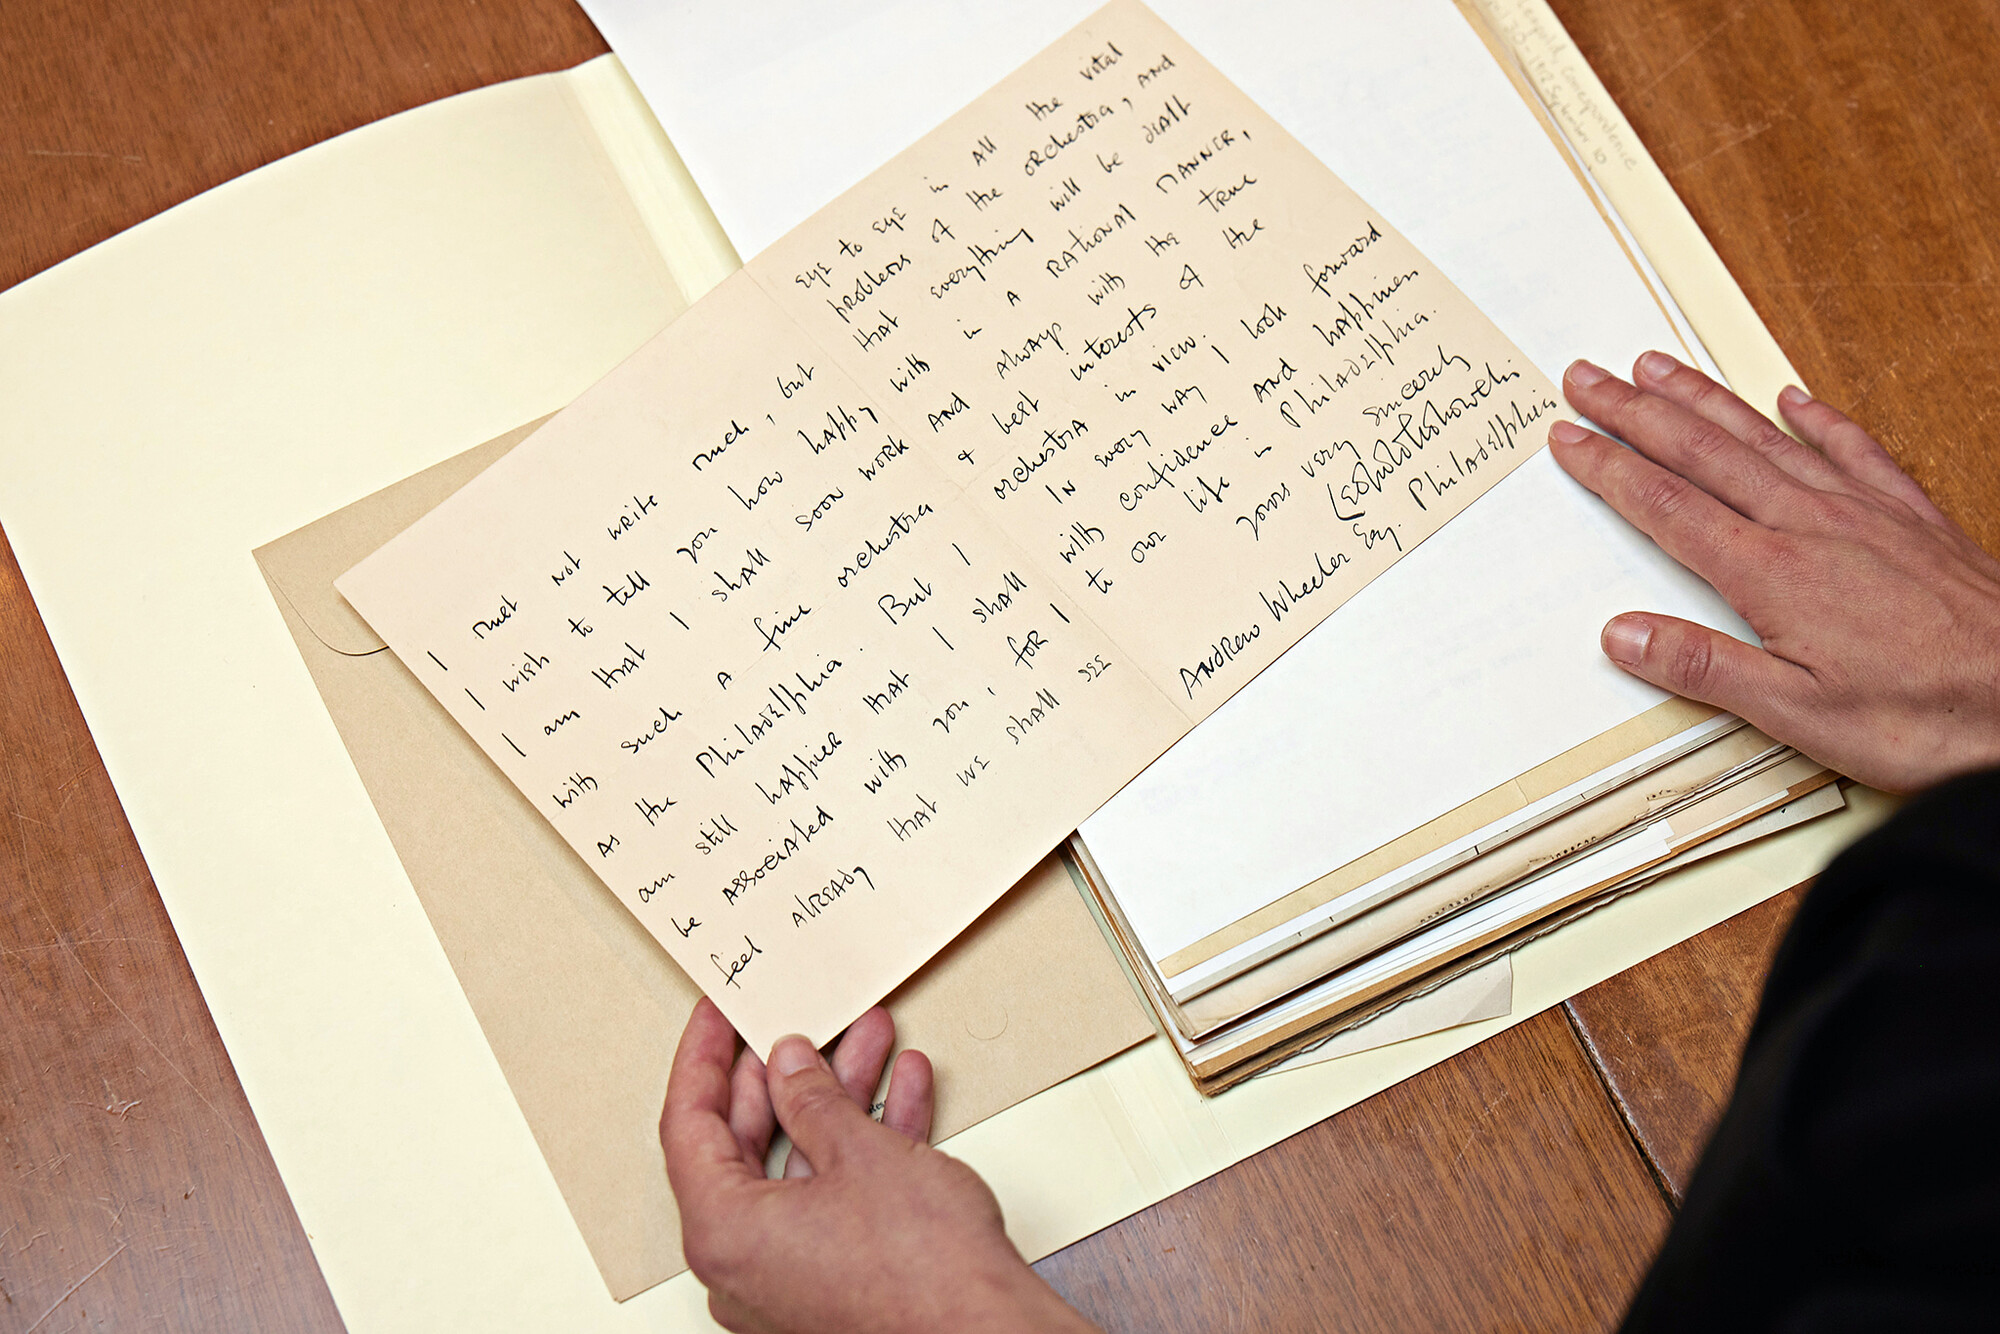 I must not write much, but
I wish to tell you how happy
I am that I shall soon work
with such a fine orchestra
as the Philadelphia. But I
am still happier that I shall
be associated with you, for I
feel already that we shall see
eye to eye in all the vital
problems of the orchestra, and
that everything will be dealt
with in a rational manner,
and always with the true
+ best interests of the
orchestra in view.
In every way I look forward
with confidence and happiness
to our life in Philadelphia.
Yours very sincerely
Leopold Stokowski
Andrew Wheeler Esq. Philadelphia
Leopold, Correspondence